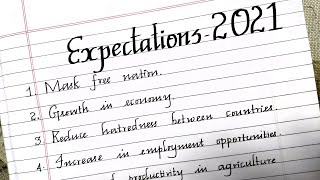 Expectations-2021
1. Mask free nation.
2. Growth in economy.
3. Reduce hatredness between countries.
4. Increase in employment opportunities.
productivity in agriculture